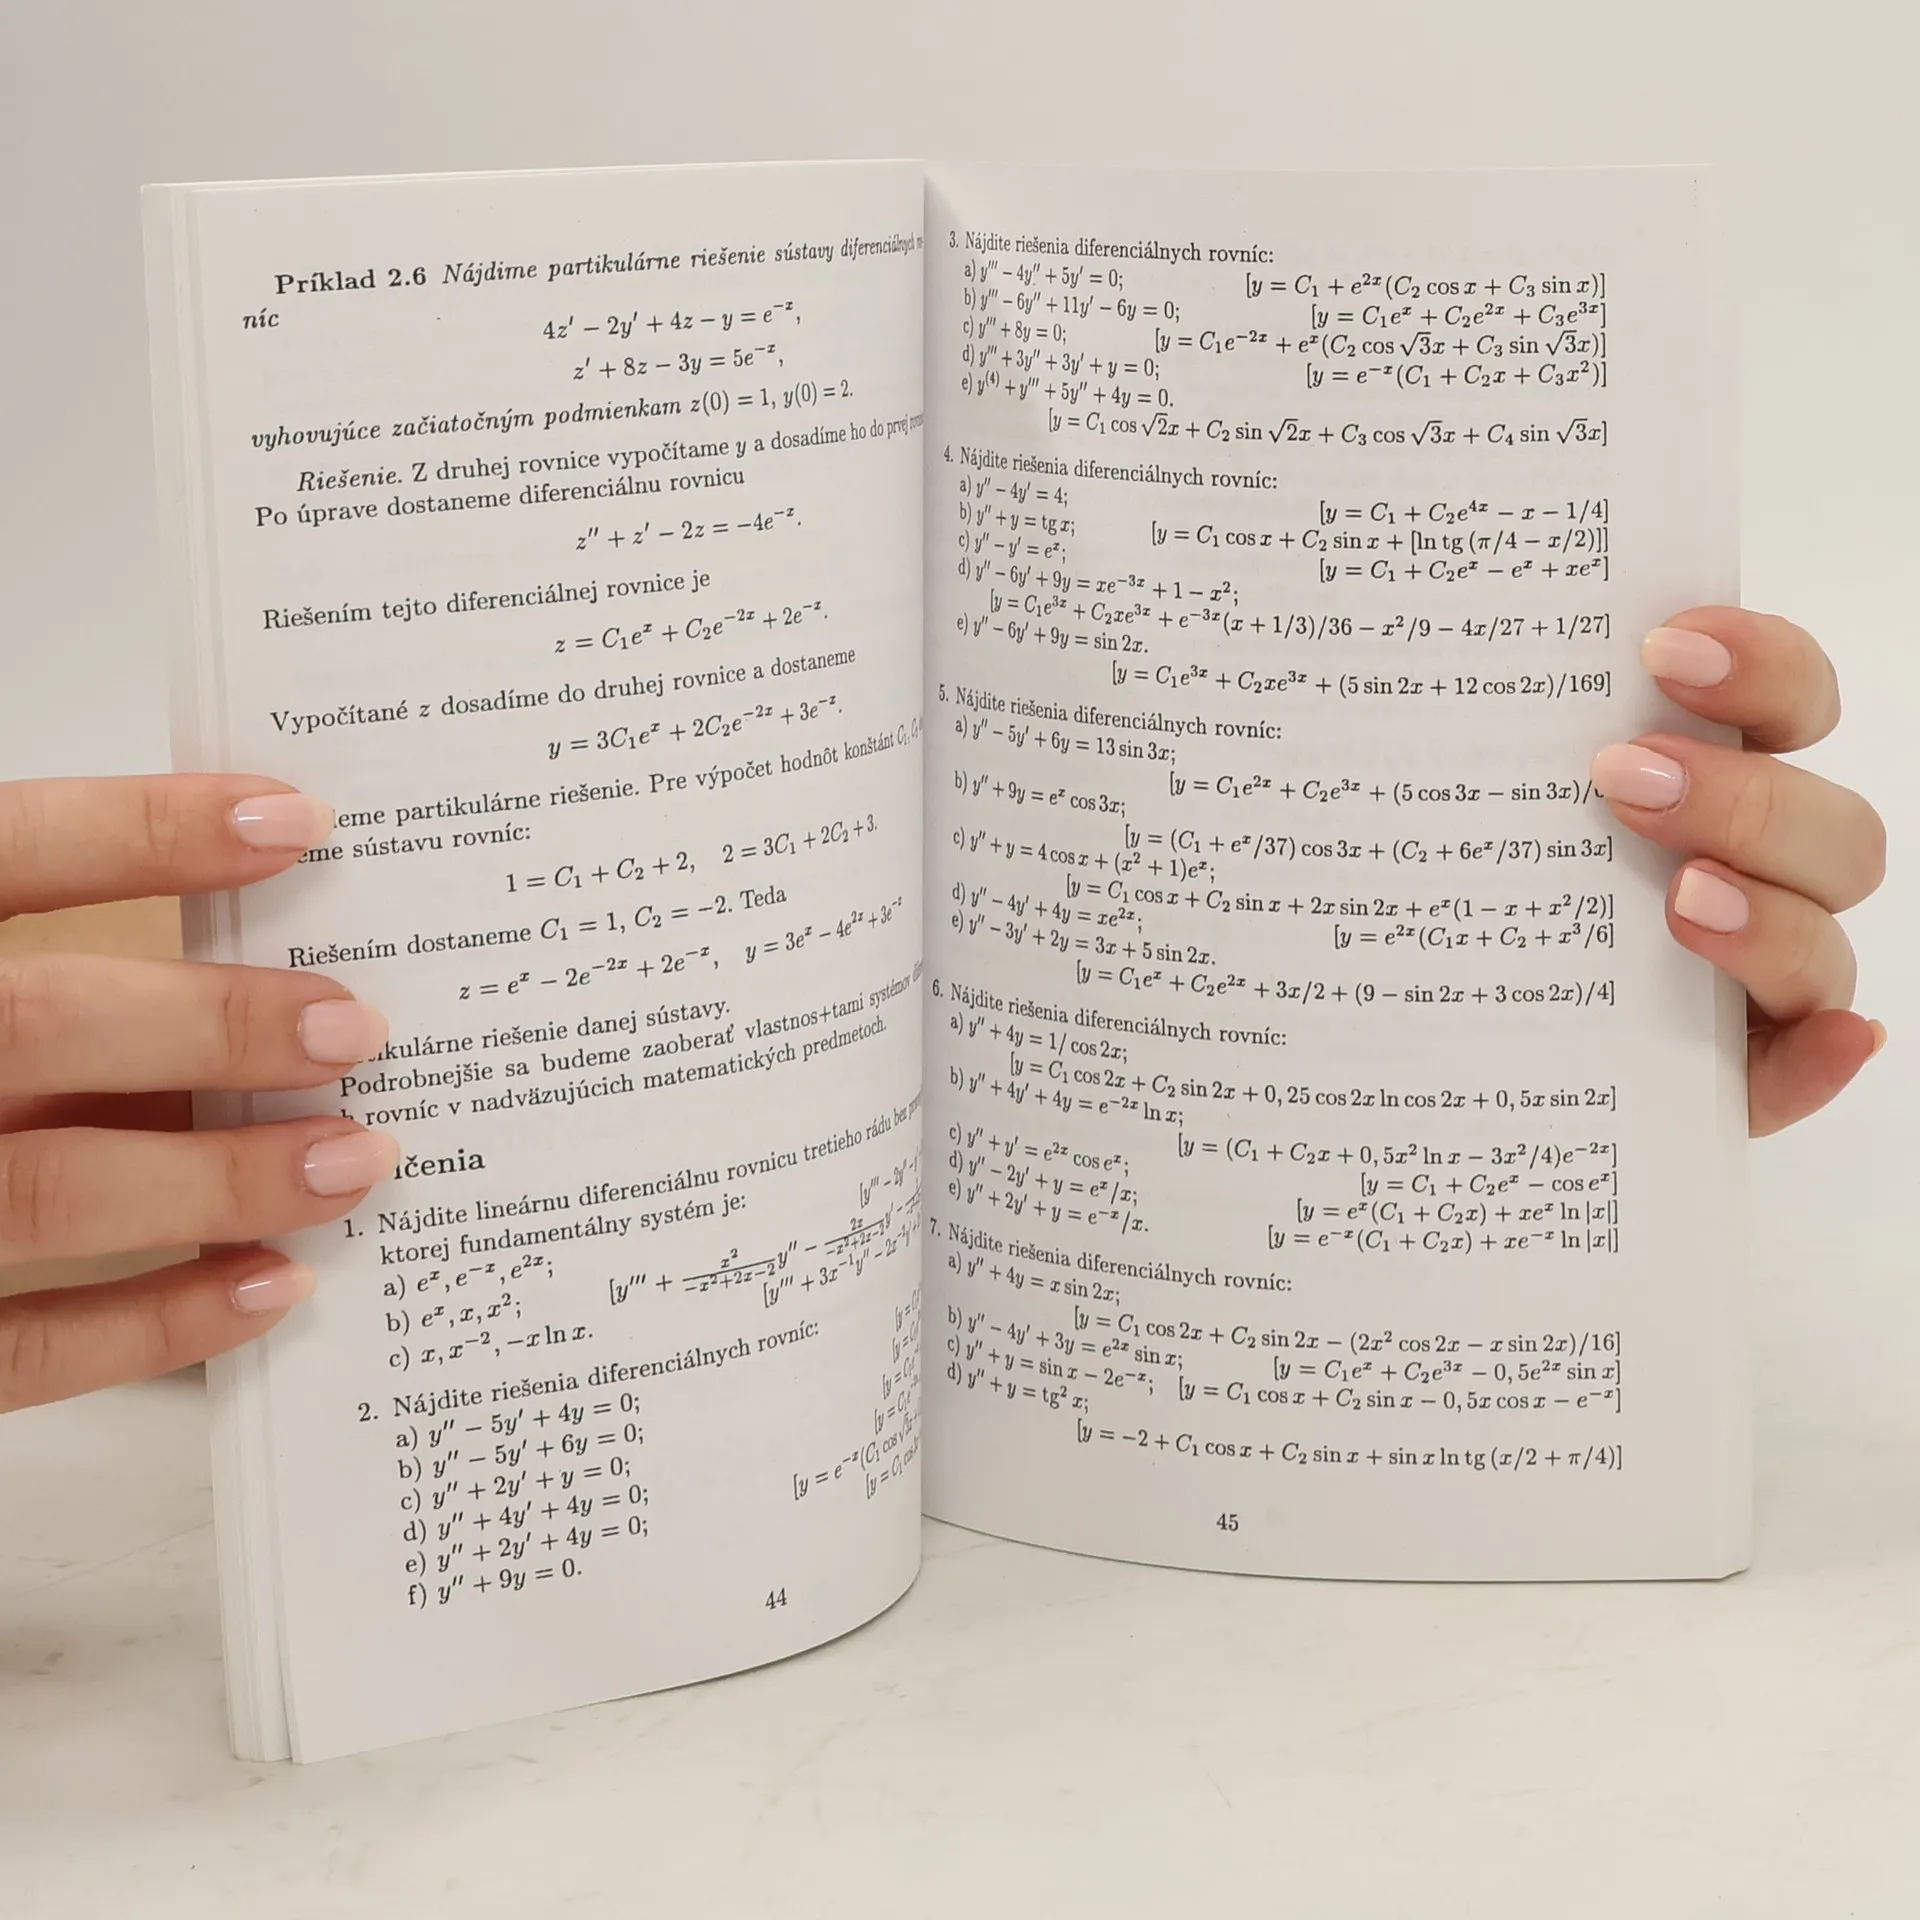 Príklad 2.6 Nájdime partikulárne riešenie sústavy diferenciálnych
níc
4z′ − 2y′ + 4z − y = e^{−x},
z′ + 8z − 3y = 5e^{−x},
vyhovujúce začiatočným podmienkam z(0) = 1, y(0) = 2.
Riešenie. Z druhej rovnice vypočítame y a dosadíme ho do prvej
Po úprave dostaneme diferenciálnu rovnicu
z″ + z′ − 2z = −4e^{−x}.
Riešením tejto diferenciálnej rovnice je
z = C₁e^x + C₂e^{−2x} + 2e^{−x}.
Vypočítané z dosadíme do druhej rovnice a dostaneme
y = 3C₁e^x + 2C₂e^{−2x} + 3e^{−x}.
partikulárne riešenie. Pre výpočet hodnôt konštánt C₁,
sústavu rovníc:
1 = C₁ + C₂ + 2, 2 = 3C₁ + 2C₂ + 3.
Riešením dostaneme C₁ = 1, C₂ = −2. Teda
z = e^x − 2e^{−2x} + 2e^{−x}, y = 3e^x − 4e^{2x} + 3e^{−x}
riešenie danej sústavy.
Podrobnejšie sa budeme zaoberať vlastnos+tami systémov
rovníc v nadväzujúcich matematických predmetoch.
čenia
1. Nájdite lineárnu diferenciálnu rovnicu tretieho rádu bez
ktorej fundamentálny systém je:
a) e^x, e^{−x}, e^{2x};
b) e^x, x, x²; [y‴ + x²/(−x²+2x−2) y″ −
c) x, x^{−2}, −x ln x. [y‴ + 3x^{−1}y″ − 2x^{−2}y′
2. Nájdite riešenia diferenciálnych rovníc:
a) y″ − 5y′ + 4y = 0;
b) y″ − 5y′ + 6y = 0;
c) y″ + 2y′ + y = 0;
d) y″ + 4y′ + 4y = 0;
e) y″ + 2y′ + 4y = 0; [y = e^{−x}(C₁ cos
f) y″ + 9y = 0. [y = C₁ cos
44
3. Nájdite riešenia diferenciálnych rovníc:
a) y‴ − 4y″ + 5y′ = 0; [y = C₁ + e^{2x}(C₂ cos x + C₃ sin x)]
b) y‴ − 6y″ + 11y′ − 6y = 0; [y = C₁e^x + C₂e^{2x} + C₃e^{3x}]
c) y‴ + 8y = 0; [y = C₁e^{−2x} + e^x(C₂ cos √3x + C₃ sin √3x)]
d) y‴ + 3y″ + 3y′ + y = 0; [y = e^{−x}(C₁ + C₂x + C₃x²)]
e) y^{(4)} + y‴ + 5y″ + 4y = 0.
[y = C₁ cos √2x + C₂ sin √2x + C₃ cos √3x + C₄ sin √3x]
4. Nájdite riešenia diferenciálnych rovníc:
a) y″ − 4y′ = 4; [y = C₁ + C₂e^{4x} − x − 1/4]
b) y″ + y = tg x; [y = C₁ cos x + C₂ sin x + [ln tg (π/4 − x/2)]]
c) y″ − y′ = e^x; [y = C₁ + C₂e^x − e^x + xe^x]
d) y″ − 6y′ + 9y = xe^{−3x} + 1 − x²;
[y = C₁e^{3x} + C₂xe^{3x} + e^{−3x}(x + 1/3)/36 − x²/9 − 4x/27 + 1/27]
e) y″ − 6y′ + 9y = sin 2x.
[y = C₁e^{3x} + C₂xe^{3x} + (5 sin 2x + 12 cos 2x)/169]
5. Nájdite riešenia diferenciálnych rovníc:
a) y″ − 5y′ + 6y = 13 sin 3x;
[y = C₁e^{2x} + C₂e^{3x} + (5 cos 3x − sin 3x)/
b) y″ + 9y = e^x cos 3x;
[y = (C₁ + e^x/37) cos 3x + (C₂ + 6e^x/37) sin 3x]
c) y″ + y = 4 cos x + (x² + 1)e^x;
[y = C₁ cos x + C₂ sin x + 2x sin 2x + e^x(1 − x + x²/2)]
d) y″ − 4y′ + 4y = xe^{2x}; [y = e^{2x}(C₁x + C₂ + x³/6]
e) y″ − 3y′ + 2y = 3x + 5 sin 2x.
[y = C₁e^x + C₂e^{2x} + 3x/2 + (9 − sin 2x + 3 cos 2x)/4]
6. Nájdite riešenia diferenciálnych rovníc:
a) y″ + 4y = 1/ cos 2x;
[y = C₁ cos 2x + C₂ sin 2x + 0, 25 cos 2x ln cos 2x + 0, 5x sin 2x]
b) y″ + 4y′ + 4y = e^{−2x} ln x;
[y = (C₁ + C₂x + 0, 5x² ln x − 3x²/4)e^{−2x}]
c) y″ + y′ = e^{2x} cos e^x; [y = C₁ + C₂e^x − cos e^x]
d) y″ − 2y′ + y = e^x/x; [y = e^x(C₁ + C₂x) + xe^x ln |x|]
e) y″ + 2y′ + y = e^{−x}/x. [y = e^{−x}(C₁ + C₂x) + xe^{−x} ln |x|]
7. Nájdite riešenia diferenciálnych rovníc:
a) y″ + 4y = x sin 2x;
[y = C₁ cos 2x + C₂ sin 2x − (2x² cos 2x − x sin 2x)/16]
b) y″ − 4y′ + 3y = e^{2x} sin x; [y = C₁e^x + C₂e^{3x} − 0, 5e^{2x} sin x]
c) y″ + y = sin x − 2e^{−x}; [y = C₁ cos x + C₂ sin x − 0, 5x cos x − e^{−x}]
d) y″ + y = tg² x;
[y = −2 + C₁ cos x + C₂ sin x + sin x ln tg (x/2 + π/4)]
45